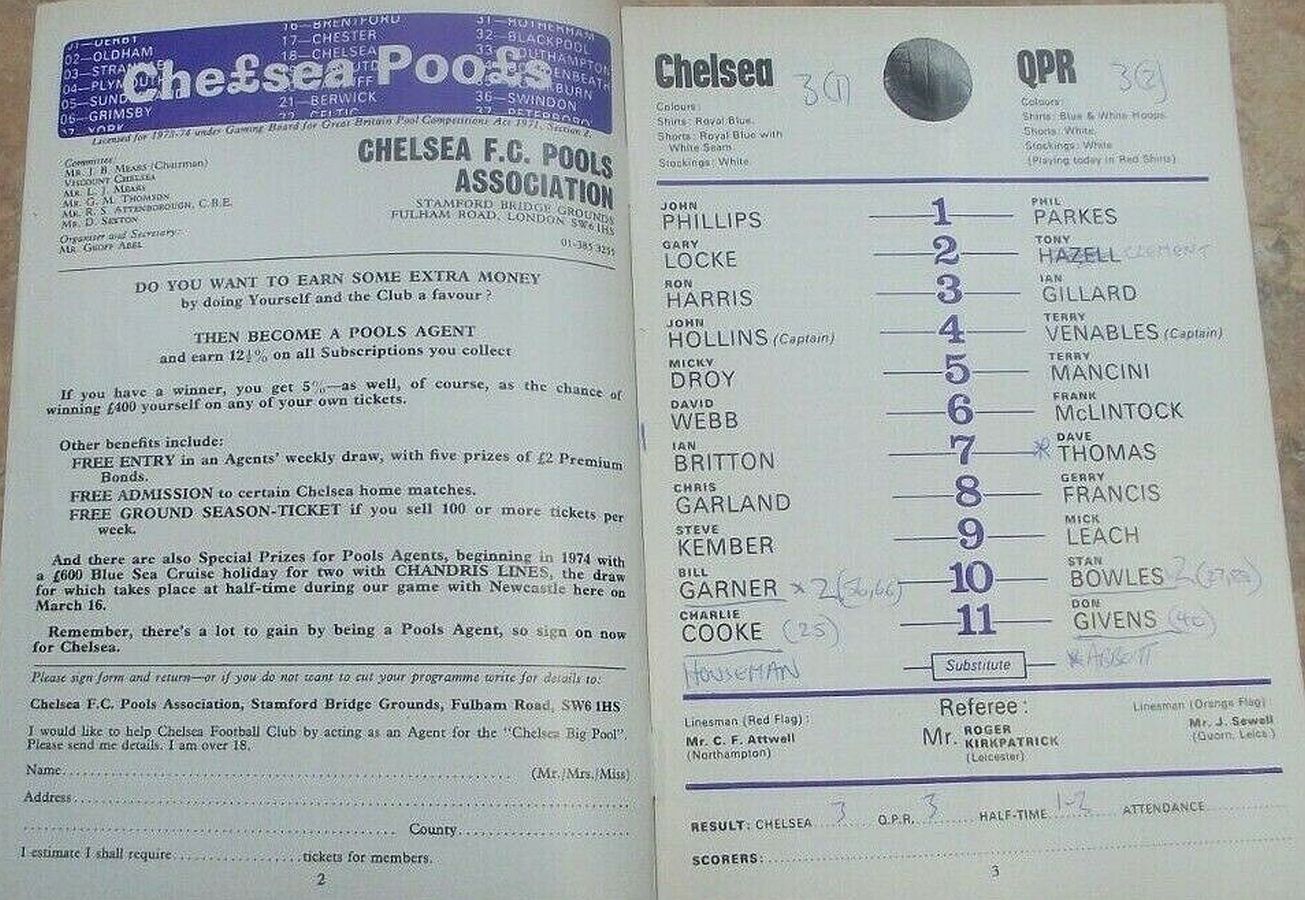 01—DERBY
02—OLDHAM
04—PLYMOUTH
06—GRIMSBY
17—YORK
16—BRENTFORD
17—CHESTER
18—CHELSEA
21—BERWICK
22—CELTIC
31—ROTHERHAM
32—BLACKPOOL
36—SWINDON
37—PETERBORO
Che£sea Poo£s
Licensed for 1973-74 under Gaming Board for Great Britain Pool Competitions Act 1971, Section 2.
Committee:
Mr. J. B. Mears (Chairman)
Viscount Chelsea
Mr. L. J. Mears
Mr. G. M. Thomson
Mr. R. S. Attenborough, C.B.E.
Mr. D. Sexton
Organiser and Secretary:
Mr. Geoff Abel
CHELSEA F.C. POOLS
ASSOCIATION
STAMFORD BRIDGE GROUNDS
FULHAM ROAD, LONDON SW6 1HS
01-385 3255
DO YOU WANT TO EARN SOME EXTRA MONEY
by doing Yourself and the Club a favour?
THEN BECOME A POOLS AGENT
and earn 12½% on all Subscriptions you collect
If you have a winner, you get 5%—as well, of course, as the chance of
winning £400 yourself on any of your own tickets.
Other benefits include:
FREE ENTRY in an Agents' weekly draw, with five prizes of £2 Premium
Bonds.
FREE ADMISSION to certain Chelsea home matches.
FREE GROUND SEASON-TICKET if you sell 100 or more tickets per
week.
And there are also Special Prizes for Pools Agents, beginning in 1974 with
a £600 Blue Sea Cruise holiday for two with CHANDRIS LINES, the draw
for which takes place at half-time during our game with Newcastle here on
March 16.
Remember, there's a lot to gain by being a Pools Agent, so sign on now
for Chelsea.
Please sign form and return—or if you do not want to cut your programme write for details to:
Chelsea F.C. Pools Association, Stamford Bridge Grounds, Fulham Road, SW6 1HS
I would like to help Chelsea Football Club by acting as an Agent for the "Chelsea Big Pool".
Please send me details. I am over 18.
Name (Mr./Mrs./Miss)
Address
County
I estimate I shall require tickets for members.
2
Chelsea 3(1)
Colours:
Shirts: Royal Blue.
Shorts: Royal Blue with
White Seam.
Stockings: White
QPR 3(2)
Colours:
Shirts: Blue & White Hoops.
Shorts: White.
Stockings: White
(Playing today in Red Shirts)
JOHN PHILLIPS 1 PHIL PARKES
GARY LOCKE 2 TONY HAZELL CLEMENT
RON HARRIS 3 IAN GILLARD
JOHN HOLLINS (Captain) 4 TERRY VENABLES (Captain)
MICKY DROY 5 TERRY MANCINI
DAVID WEBB 6 FRANK McLINTOCK
IAN BRITTON 7 * DAVE THOMAS
CHRIS GARLAND 8 GERRY FRANCIS
STEVE KEMBER 9 MICK LEACH
BILL GARNER * 2 (56,66) 10 STAN BOWLES 2
CHARLIE COOKE (25) 11 DON GIVENS
HOUSEMAN Substitute * ABBOTT
Linesman (Red Flag):
Mr. C. F. Attwell
(Northampton)
Referee:
Mr. ROGER KIRKPATRICK
(Leicester)
Linesman (Orange Flag)
Mr. J. Sewell
(Quorn, Leics.)
RESULT: CHELSEA 3 Q.P.R. 3 HALF-TIME 1-2 ATTENDANCE
SCORERS:
3